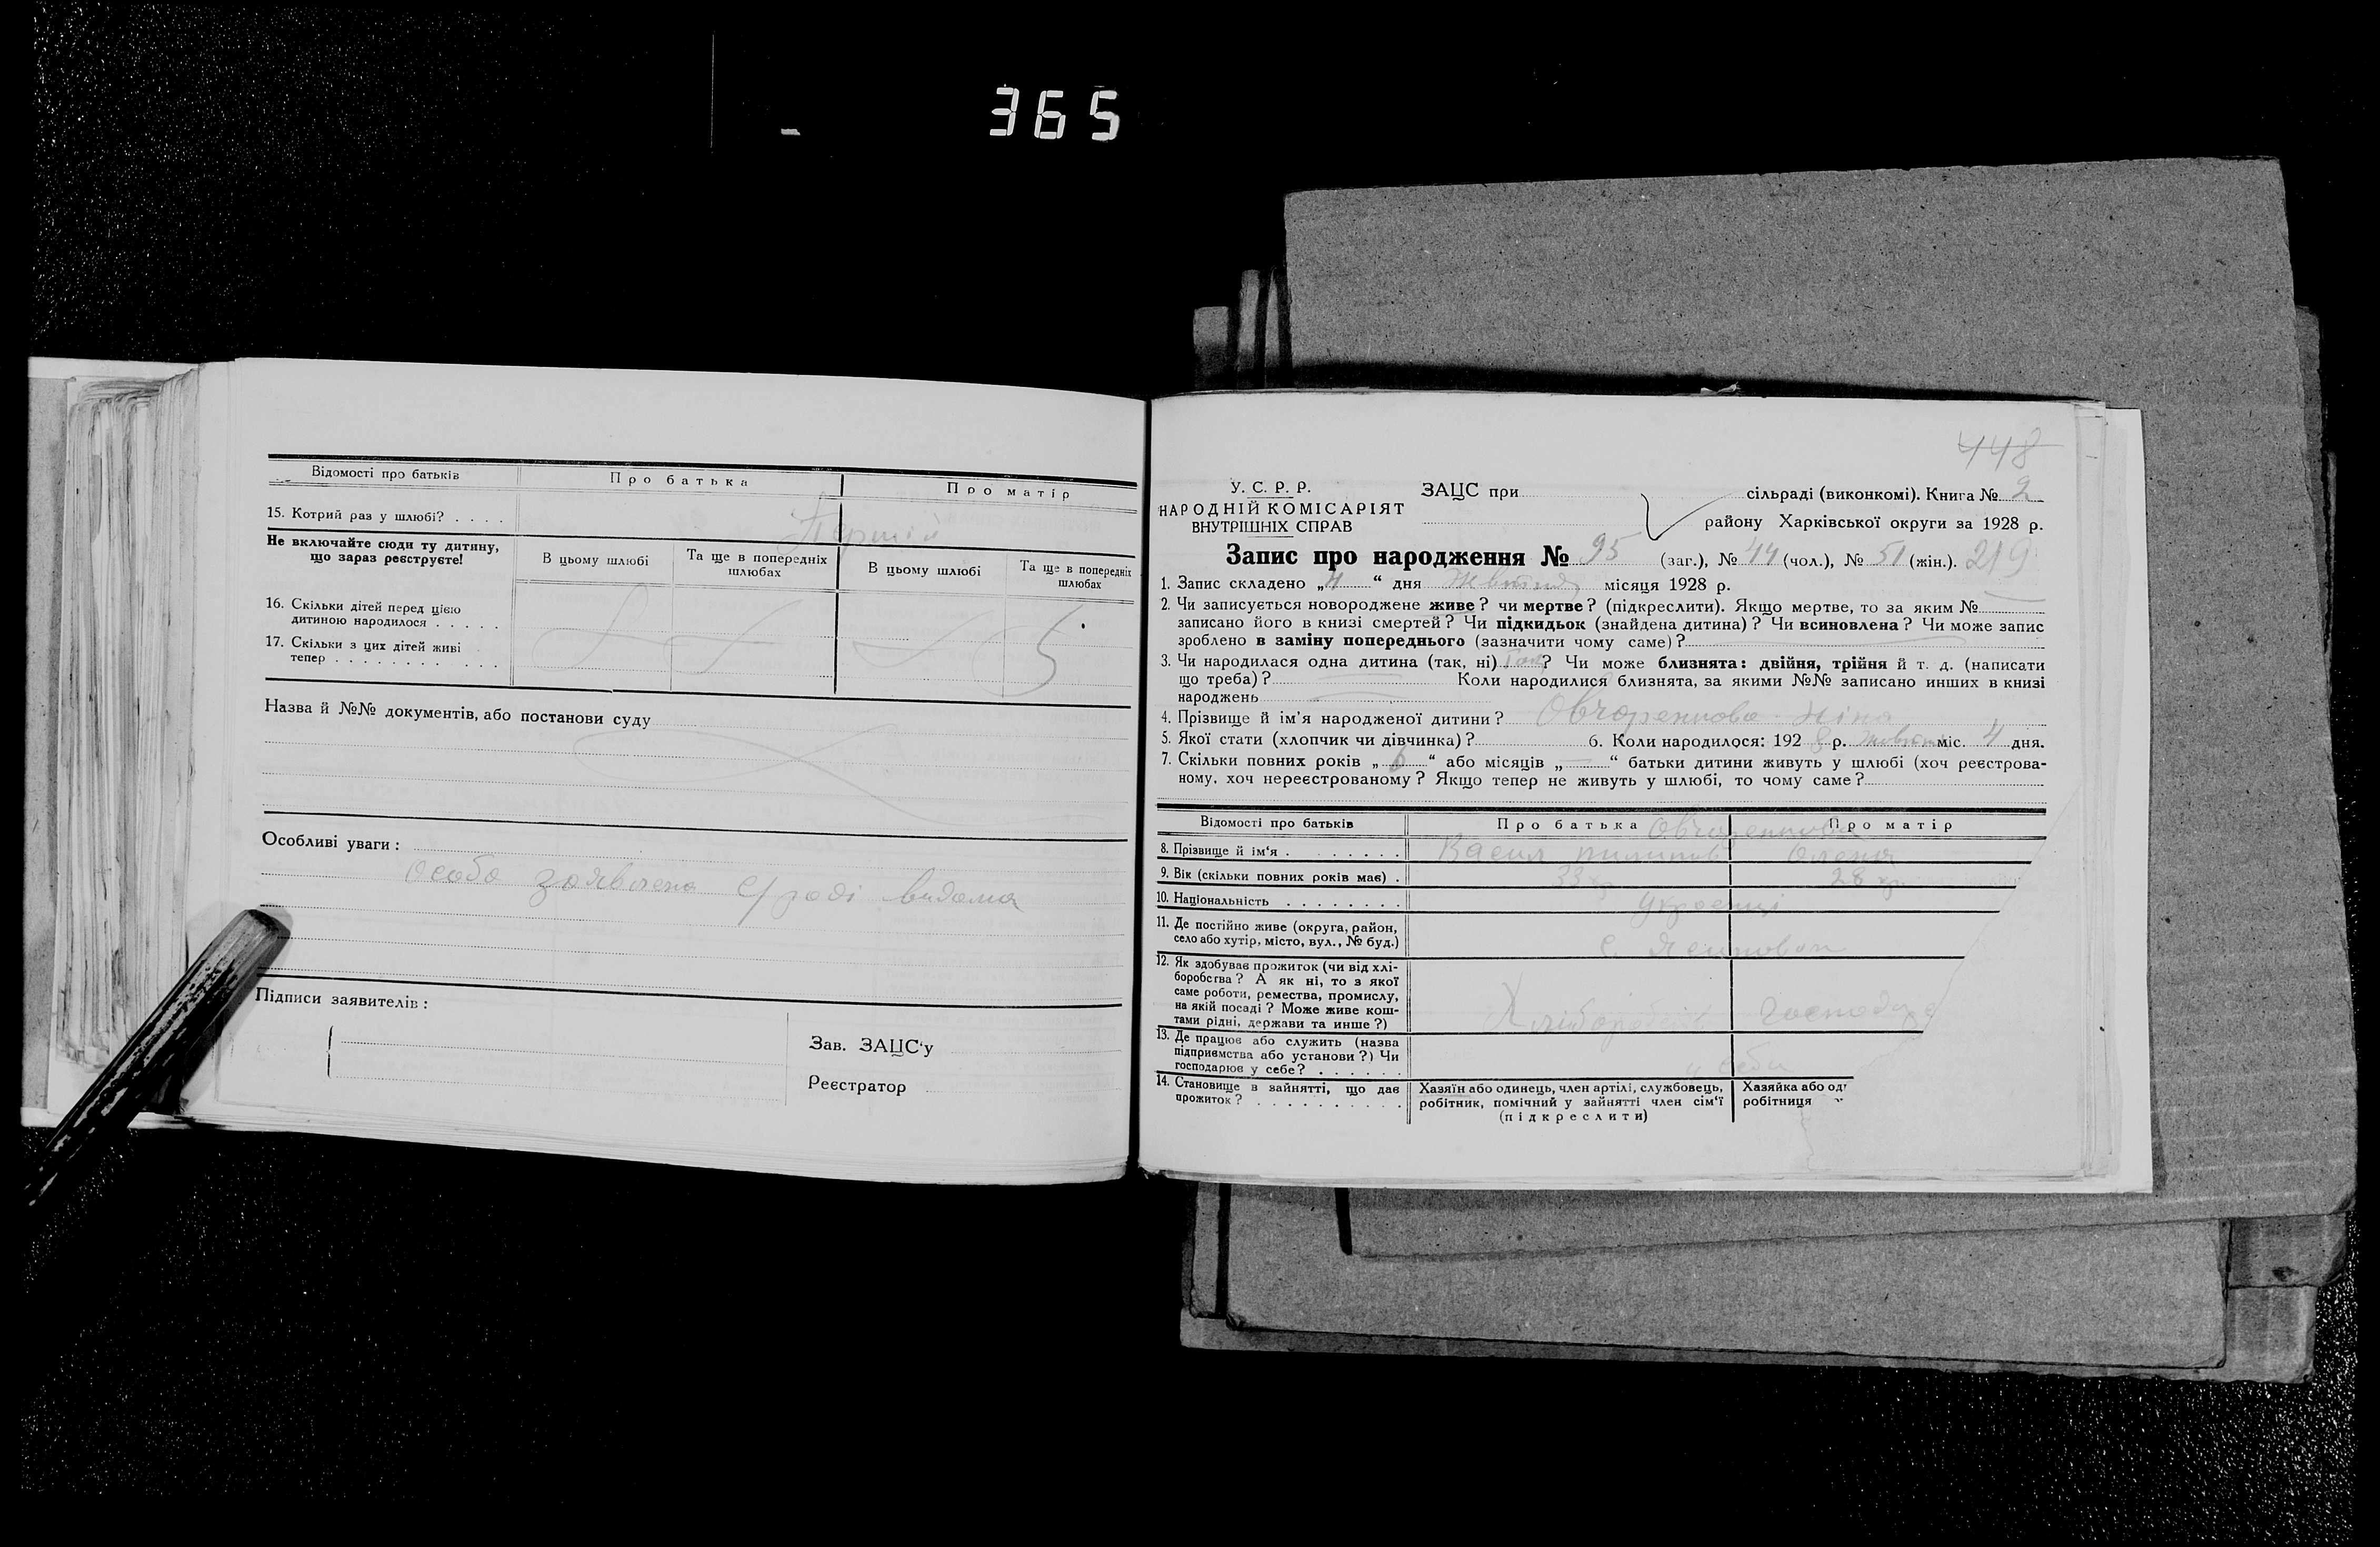 365
Відомості про батьків
Про батька
Про матір
15. Котрий раз у шлюбі? . . . .
Перший
Не включайте сюди ту дитину, що зараз реєструєте!
В цьому шлюбі
Та ще в попередніх шлюбах
В цьому шлюбі
Та ще в попередніх шлюбах
16. Скільки дітей перед цією
дитиною народилося . . . . .
17. Скільки з цих дітей живі
тепер . . . . . . . . . . . .
Назва й №№ документів, або постанови суду
Особливі уваги :
особа заявлена с/раді видома
Підписи заявителів :
Зав. ЗАЦС'у
Реєстратор
448
У. С. Р. Р.
НАРОДНІЙ КОМІСАРІЯТ
ВНУТРІШНІХ СПРАВ
ЗАЦС при
сільраді (виконкомі). Книга № 2
району Харківської округи за 1928 р.
Запис про народження № 95 (заг.), № 44 (чол.), № 51 (жін.). 219
1. Запис складено „ “ дня жовтня місяця 1928 р.
2. Чи записується новороджене живе? чи мертве? (підкреслити). Якщо мертве, то за яким №
записано його в книзі смертей? Чи підкидьок (знайдена дитина)? Чи всиновлена? Чи може запис
зроблено в заміну попереднього (зазначити чому саме)?
3. Чи народилася одна дитина (так, ні) так? Чи може близнята: двійня, трійня й т. д. (написати
що треба)? Коли народилися близнята, за якими №№ записано инших в книзі
народжень
4. Прізвище й ім'я народженої дитини? Ніна
5. Якої стати (хлопчик чи дівчинка)? 6. Коли народилося: 1928 р. міс. 4 дня.
7. Скільки повних років „ 6 “ або місяців „ “ батьки дитини живуть у шлюбі (хоч реєстрова-
ному, хоч нереєстрованому? Якщо тепер не живуть у шлюбі, то чому саме?
Відомості про батьків
Про батька
Про матір
8. Прізвище й ім'я . . . . . . . .
Василь Олена
9. Вік (скільки повних років має) .
33 28
10. Національність . . . . . . . .
Українці
11. Де постійно живе (округа, район,
село або хутір, місто, вул., № буд.)
с.
12. Як здобуває прожиток (чи від хлі-
боробства? А як ні, то з якої
саме роботи, ремества, промислу,
на якій посаді? Може живе кош-
тами рідні, держави та инше?)
13. Де працює або служить (назва
підприємства або установи?) Чи
господарює у себе? . . . . . .
у себи
14. Становище в зайнятті, що дає
прожиток? . . . . . . . . . .
Хазяїн або одинець, член артілі, службовець,
робітник, помічний у зайнятті член сім'ї
(підкреслити)
Хазяйка або од
робітниця